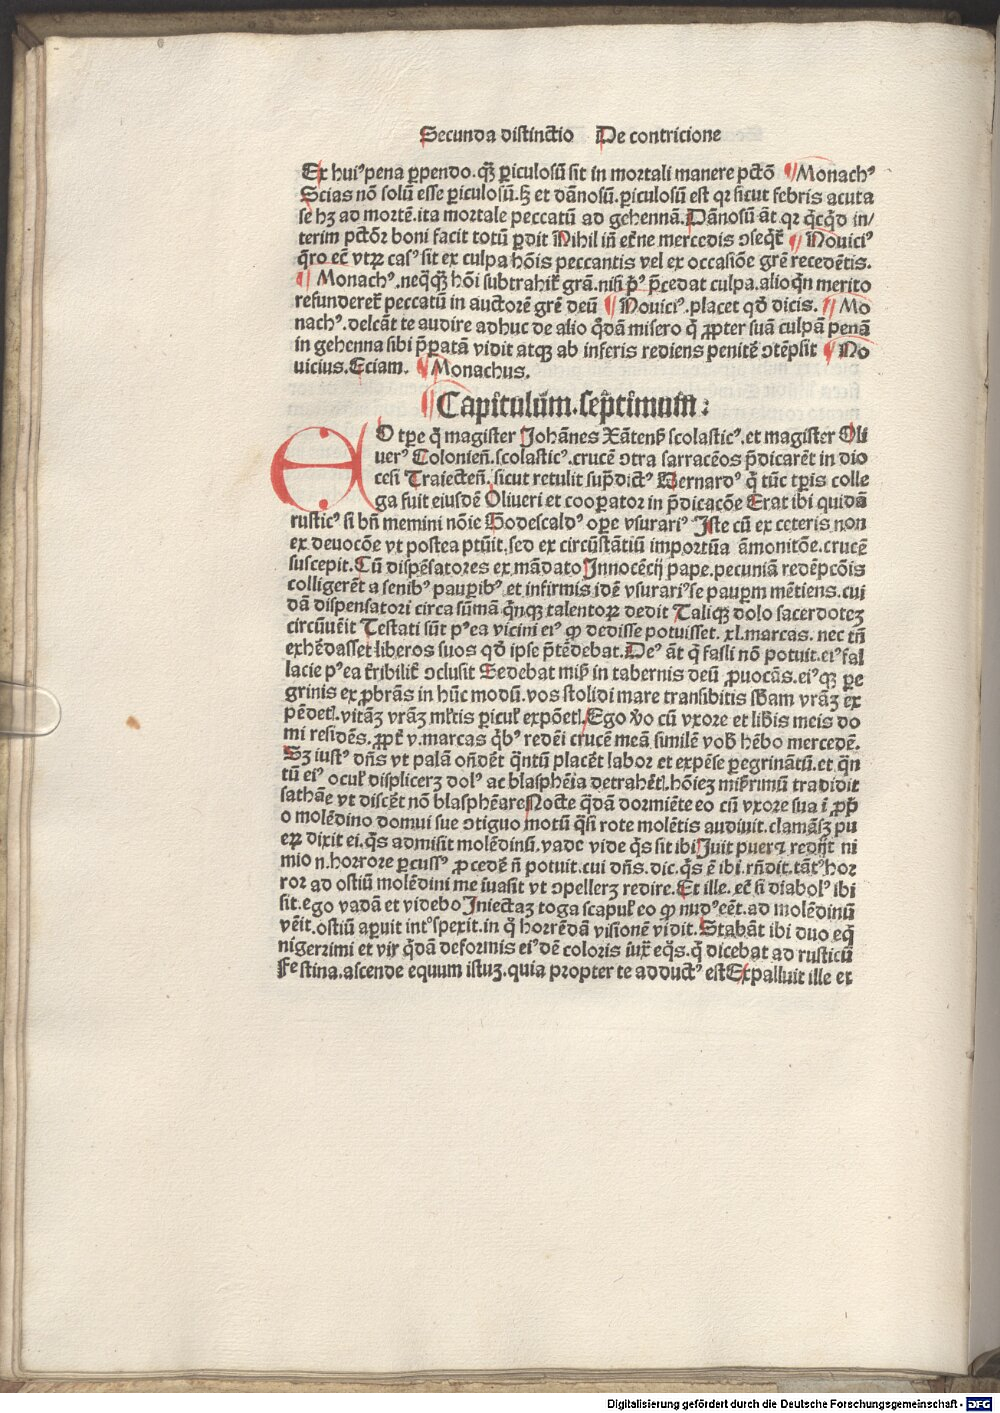 Secunda distinctio De contricione
Ex huiꝰ pena ꝑpendo. qͣꝫ ꝑiculosū sit in mortali manere pctō ¶ Monachꝰ
Scias nō solū esse ꝑiculosū. sꝫ et dānosū. ꝑiculosū est qꝛ sicut febris acuta
se hꝫ ad mortē. ita mortale peccatū ad gehennā. Dānosū āt. qꝛ qͥcqͥd in/
terim pctōꝝ boni facit totū ꝑdit Nihil iñ et̄ne mercedis ↄseqt̄ ¶ Nouiciꝰ
q̄ro ec̄ vtꝝ casꝰ sit ex culpa hōis peccantis vel ex occasiōe gr̄e recedētis.
¶ Monachꝰ. neqͣꝙꝫ hōi subtrahit̄ gr̄a. nisi pͥꝰ p̄cedat culpa. alioqͥn merito
refunderet̄ peccatū in auctorē gr̄e deū ¶ Nouiciꝰ. placet qđ dicis. ¶ Mo
nachꝰ. delcāt te audire adhuc de alio qͦdā misero qͥ ꝓpter suā culpā penā
in gehenna sibi p̄ꝑatā vidit atqꝫ ab inferis rediens penitē ↄtēpsit ¶ No
uicius. Eciam. ¶ Monachus.
¶ Capitulūm. septimum:
EO tꝑe qͦ magister Johānes Xātenꝭ scolasticꝰ. et magister Oli
uerꝰ Colonieñ. scolasticꝰ. crucē ↄtra sarracēos p̄dicarēt in dio
cesi Traiecteñ. sicut retulit sup̄dictꝰ Bernardꝰ qͥ tūc tꝑis colle
ga fuit eiusdē Oliueri et cooꝑator in p̄dicacōe Erat ibi quidā
rusticꝰ si bñ memini nōie Godescaldꝰ oꝑe vsurariꝰ Iste cū ex ceteris non
ex deuocōe vt postea ptūit. sed ex circūstātiū importūa āmonitōe. crucē
suscepit. Cū dispēsatores ex mādato Innocēcij pape. pecuniā redēpcōis
colligerēt a senibꝰ pauꝑibꝰ et infirmis idē vsurariꝰ se pauꝑm mētiens. cui
dā dispensatori circa sūmā qͥnqꝫ talentoꝝ dedit Taliqꝫ dolo sacerdotē
circūuēit Testati sūt pꝰea vicini eiꝰ ꝙ dedisse potuisset. xl. marcas. nec tñ
exhēdasset liberos suos qđ ipse p̄tēdebat. Deꝰ āt qͥ falli nō potuit. eiꝰ fal
lacie pꝰea t̄ribilit̄ ↄclusit Sedebat misꝫ in tabernis deū ꝓuocās. eiꝰqꝫ ꝑe
grinis exꝓbrās in hūc modū. vos stolidi mare transibitis sb̄am vrāꝫ ex
pēdet. vitāꝫ vrāꝫ ml̄tis ꝑicul̄ expōet. Ego v̄o cū vxore et lib̄is meis do
mi residēs. ꝓpt̄ v. marcas qͥbꝰ redēi crucē meā similē vob̄ hēbo mercedē.
Sꝫ iustꝰ dñs vt palā oñdet̄ qͣntū placēt labor et expēse ꝑegrinātiū. et qͣn
tū eiꝰ ocul̄ displiceꝝ dolꝰ ac blasphēia detrahēt. hōieꝫ misꝫrimū tradidit
sathāe vt disceret nō blasphēare Nocte qͣdā dormiēte eo cū vxore sua ī ꝓpͥ
o molēdino domui sue ↄtiguo motū qͣsi rote molētis audiuit. clamāsꝫ pu
eꝝ dixit ei. qͥs admisit molēdinū. vade vide qͥs sit ibi Iuit puer ⁊ redijt ni
mio ñ. horrore ꝑcussꝰ ꝓcedē ñ potuit. cui dñs. dic. qͥs ē ibi. rñdit. tātꝰ hor
ror ad ostiū molēdini me īuasit vt ↄpelleꝝ redire. Et ille. ec̄ si diabolꝰ ibi
sit. ego vadā et videbo Iniectaꝫ toga scapul̄ eo ꝙ nudꝰ eēt. ad molēdinū
vēit. ostiū aꝑuit intꝰspexit. in qͦ horrēdā visionē vidit. Stabāt ibi duo eqͥ
nigerrimi et vir qͥdā deformis eiꝰdē coloris iux̄ eqͦs. qͥ dicebat ad rusticū
Festina. ascende equum istuꝫ. quia propter te adductꝰ est Expalluit ille et
Digitalisierung gefördert durch die Deutsche Forschungsgemeinschaft - DFG